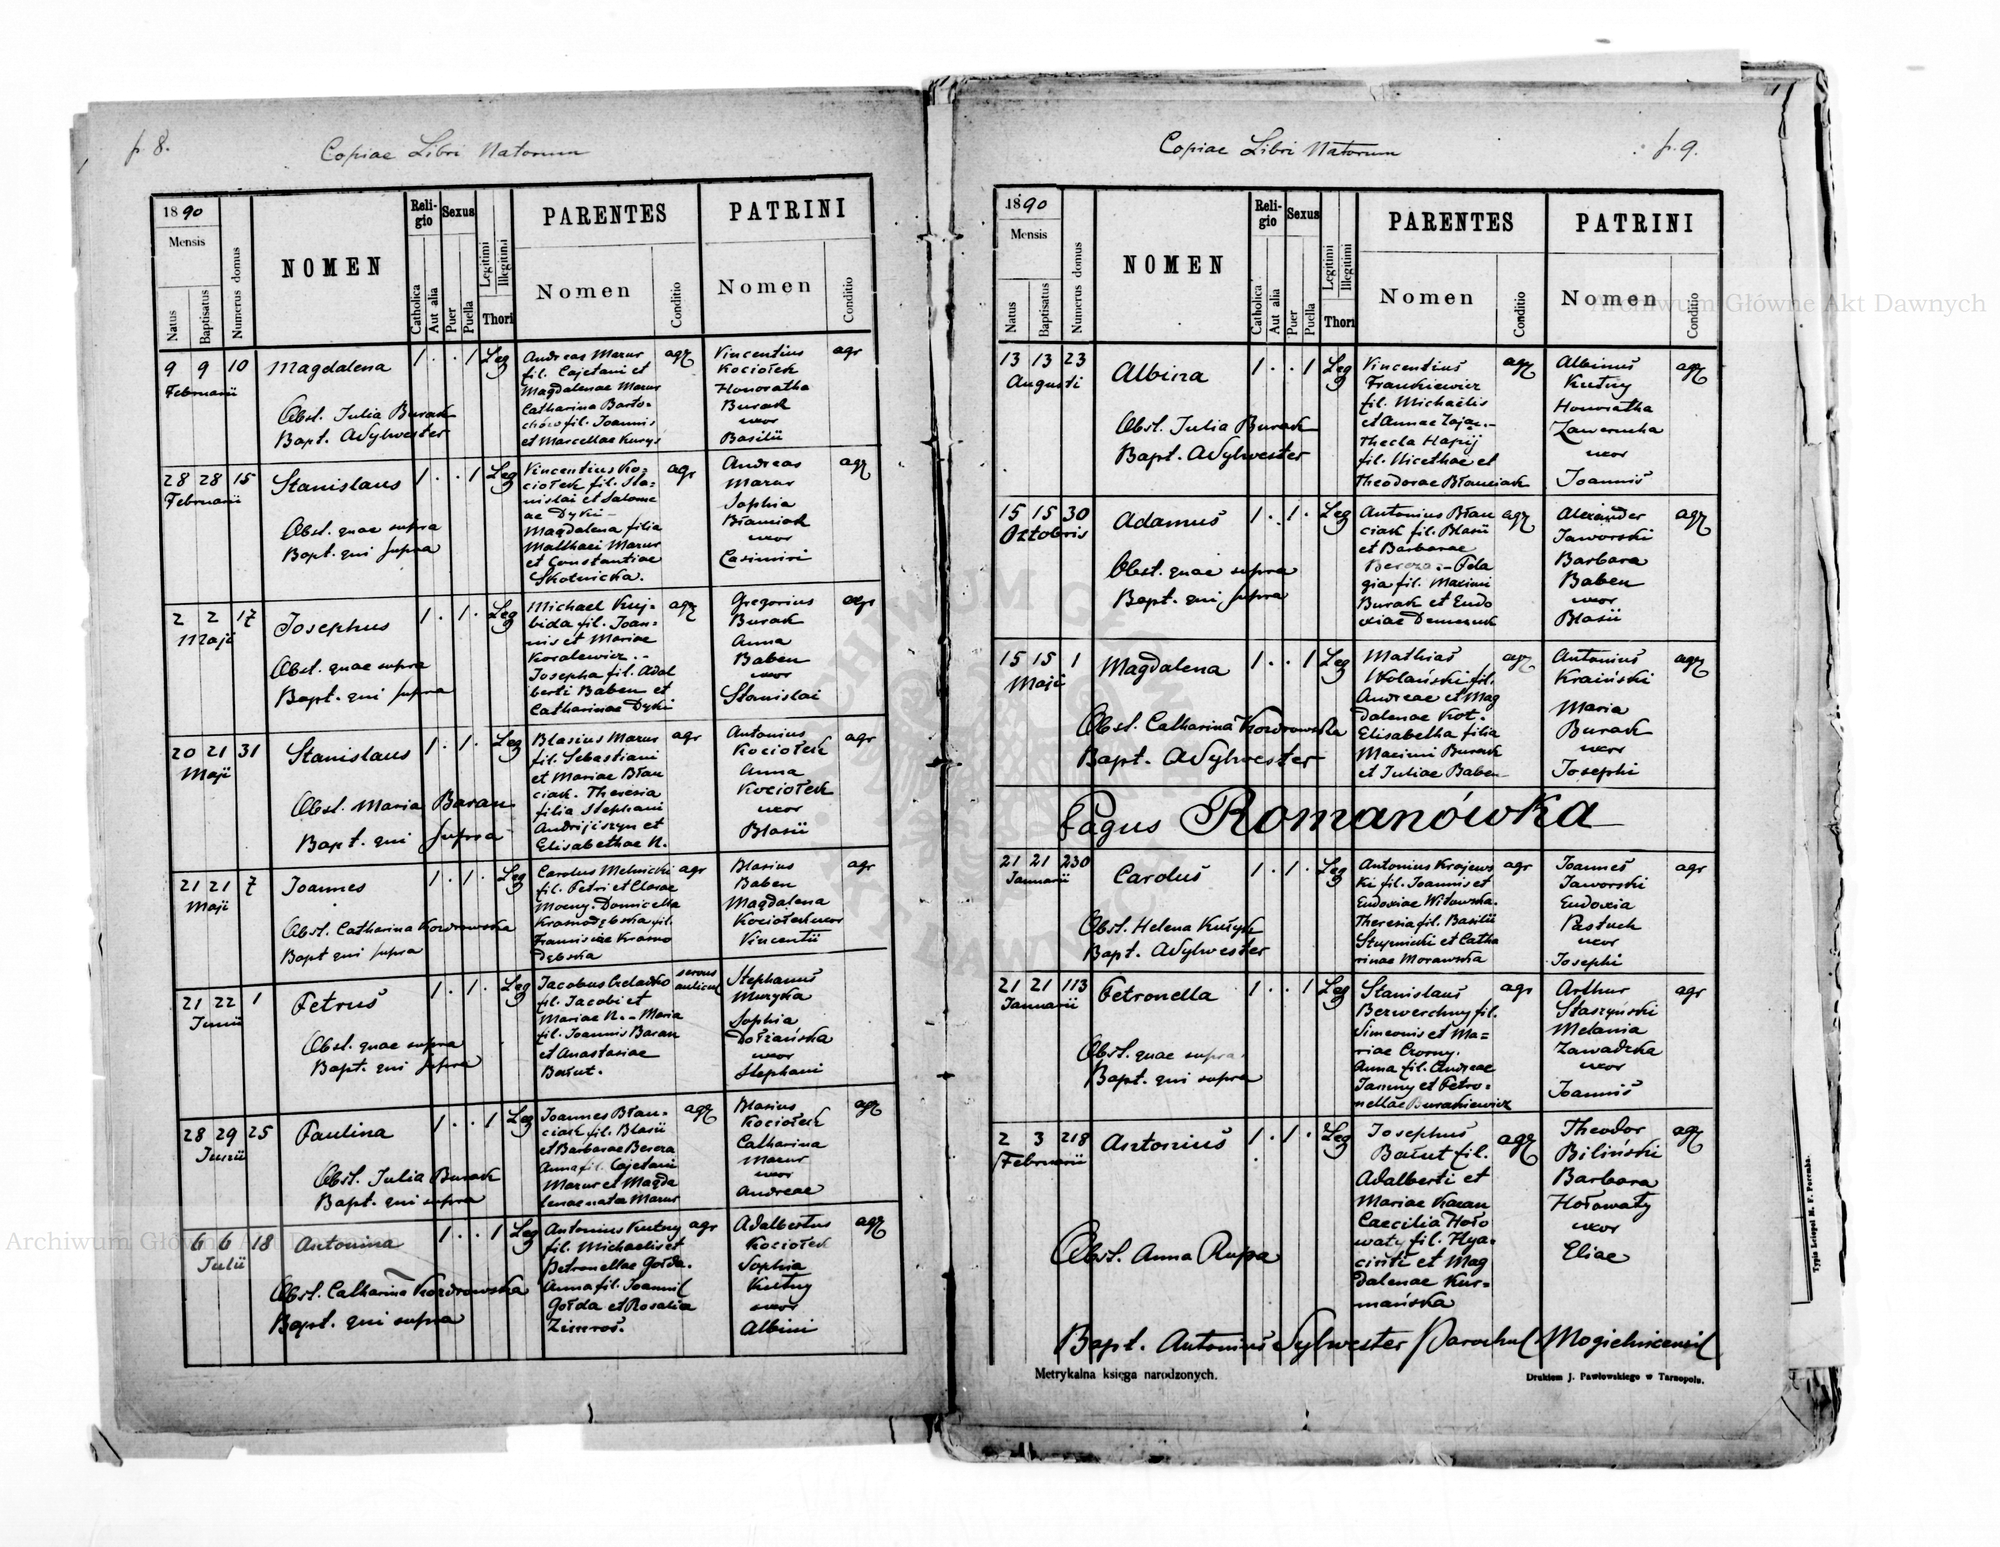 p. 8.
Copiae Libri Natorum
1890
Mensis
Natus
Baptisatus
Numerus domus
NOMEN
Reli-
gio
Catholica
Aut alia
Sexus
Puer
Puella
Legitimi
Illegitimi
Thori
PARENTES
Nomen
Conditio
PATRINI
Nomen
Conditio
9 9 10
Februarii
Magdalena
Obst. Julia Burak
Bapt. ASylwester
1 . . 1 Leg
Andreas Mazur
fil. Cajetani et
Magdalenae Mazur
Catharina Barto-
fil. Joannis
et Marcellae Kurys
agr
Vincentius
Kociołek
Honoratha
Burak
uxor
Basilii
agr
28 28 15
Februarii
Stanislaus
Obst. quae supra
Bapt. qui supra
1 . . 1 Leg
Vincentius Ko-
ciołek fil. Sta-
nislai et Salome
ae Dyki –
Magdalena filia
Matthaei Mazur
et Constantiae
Skotnicka.
agr
Andreas
Mazur
Sophia
Błauciak
uxor
Casimiri
agr
2 2 17
Maji
Josephus
Obst. quae supra
Bapt. qui supra
1 . 1 . Leg
Michael Kuj-
bida fil. Joan-
nis et Mariae
Koralewicz . -
Josepha fil. Adal
berti Baben et
Catharinae Dyki
agr
Gregorius
Burak
Anna
Baben
uxor
Stanislai
agr
20 21 31
Maji
Stanislaus
Obst. Maria Baran
Bapt. qui supra
1 . 1 . Leg
Blasius Mazur
fil. Sebastiani
et Mariae Błau
ciak. Theresia
filia Stephani
Andrijiszyn et
Elisabethae N.
agr
Antonius
Kociołek
Anna
Kociołek
uxor
Blasii
agr
21 21 7
Maji
Joannes
Obst. Catharina Kozdrowska
Bapt qui supra
1 . 1 . Leg
Carolus Melnicki
fil. Petri et Clarae
Domicella
fil.
Francisciae Krasno
Dębska
agr
Blasius
Baben
Magdalena
Kociołek uxor
Vincentii
agr
21 22 1
Junii
Petrus
Obst. quae supra
Bapt. qui supra
1 . 1 . Leg
Jacobus
fil. Jacobi et
Mariae N. – Maria
fil. Joannis Baran
et Anastasiae
Bałut.
servus
aulicus
Stephanus
Muzyka
Sophia
Dołżańska
uxor
Stephani
28 29 25
Junii
Paulina
Obst. Julia Burak
Bapt. qui supra
1 . . 1 Leg
Joannes Błau-
ciak fil. Blasii
et Barbarae Bereza
Anna fil. Cajetani
Mazur et Magda
lenae nata Mazur
agr
Blasius
Kociołek
Catharina
Mazur
uxor
Andreae
agr
6 6 18
Julii
Antonina
Obst. Catharina Kozdrowska
Bapt. qui supra
1 . . 1 Leg
Antonius Kutny
fil. Michaelis et
Petronellae Gołda.
Anna fil. Joannis
Gołda et Rosalia
Zimroś.
agr
Adalbertus
Kociołek
Sophia
Kutny
uxor
Albini
agr
Copiae Libri Natorum
p. 9.
1890
Mensis
Natus
Baptisatus
Numerus domus
NOMEN
Reli-
gio
Catholica
Aut alia
Sexus
Puer
Puella
Legitimi
Illegitimi
Thori
PARENTES
Nomen
Conditio
PATRINI
Nomen
Conditio
13 13 23
Augusti
Albina
Obst. Julia Burak
Bapt. ASylwester
1 . . 1 Leg
Vincentius
Frankiewicz
fil. Michaëlis
et Annae Zając. –
Thecla Hapij
fil. Nicethae et
Theodorae Błauciak
agr
Albinus
Kutny
Honoratha
Zawerucha
uxor
Joannis
agr
15 15 30
Octobris
Adamus
Obst. quae supra
Bapt. qui supra
1 . 1 . Leg
Antonius Błau
ciak fil. Blasii
et Barbarae
Bereza. – Pela
gia fil. Maximi
Burak et Eudo
xiae Demczuk
agr
Alexander
Jaworski
Barbara
Baben
uxor
Blasii
agr
15 15 1
Maji
Magdalena
Obst. Catharina Kozdrowska
Bapt. ASylwester
1 . . 1 Leg
Mathias
Wolański fil.
Andreae et Mag
dalenae Kot.
Elisabetha filia
Maximi Burak
et Juliae Baben
agr
Antonius
Kraiński
Maria
Burak
uxor
Josephi
agr
Pagus Romanówka
21 21 230
Januarii
Carolus
Obst. Helena Kułyk
Bapt. ASylwester
1 . 1 . Leg
Antonius Krajews
ki fil. Joannis et
Eudoxiae Witowska.
Theresia fil. Basilii
Stupnicki et Catha
rinae Morawska
agr
Joannes
Jaworski
Eudoxia
Pastuch
uxor
Josephi
agr
21 21 113
Januarii
Petronella
Obst. quae supra
Bapt. qui supra
1 . . 1 Leg
Stanislaus
Bezwerchny fil.
Simeonis et Ma-
riae Czorny.
Anna fil. Andreae
Jamny et Petro-
nellae Burakiewicz
agr
Arthur
Staszyński
Melania
Zawadzka
uxor
Joannis
agr
2 3 218
Februarii
Antonius
Obst. Anna Rupa
1 . 1 . Leg
Josephus
Bałut fil.
Adalberti et
Mariae Kazan
Caecilia Hoło
waty fil. Hya-
cinti et Mag
dalenae Kur-
mańska
agr
Theodor
Biliński
Barbara
Hołowaty
uxor
Eliae
agr
Bapt. Antonius Sylwester Parochus Mogielnicensis
Metrykalna księga narodzonych.
Drukiem J. Pawłowskiego w Tarnopolu.
Archiwum Główne Akt Dawnych
Archiwum Główne Akt Dawnych